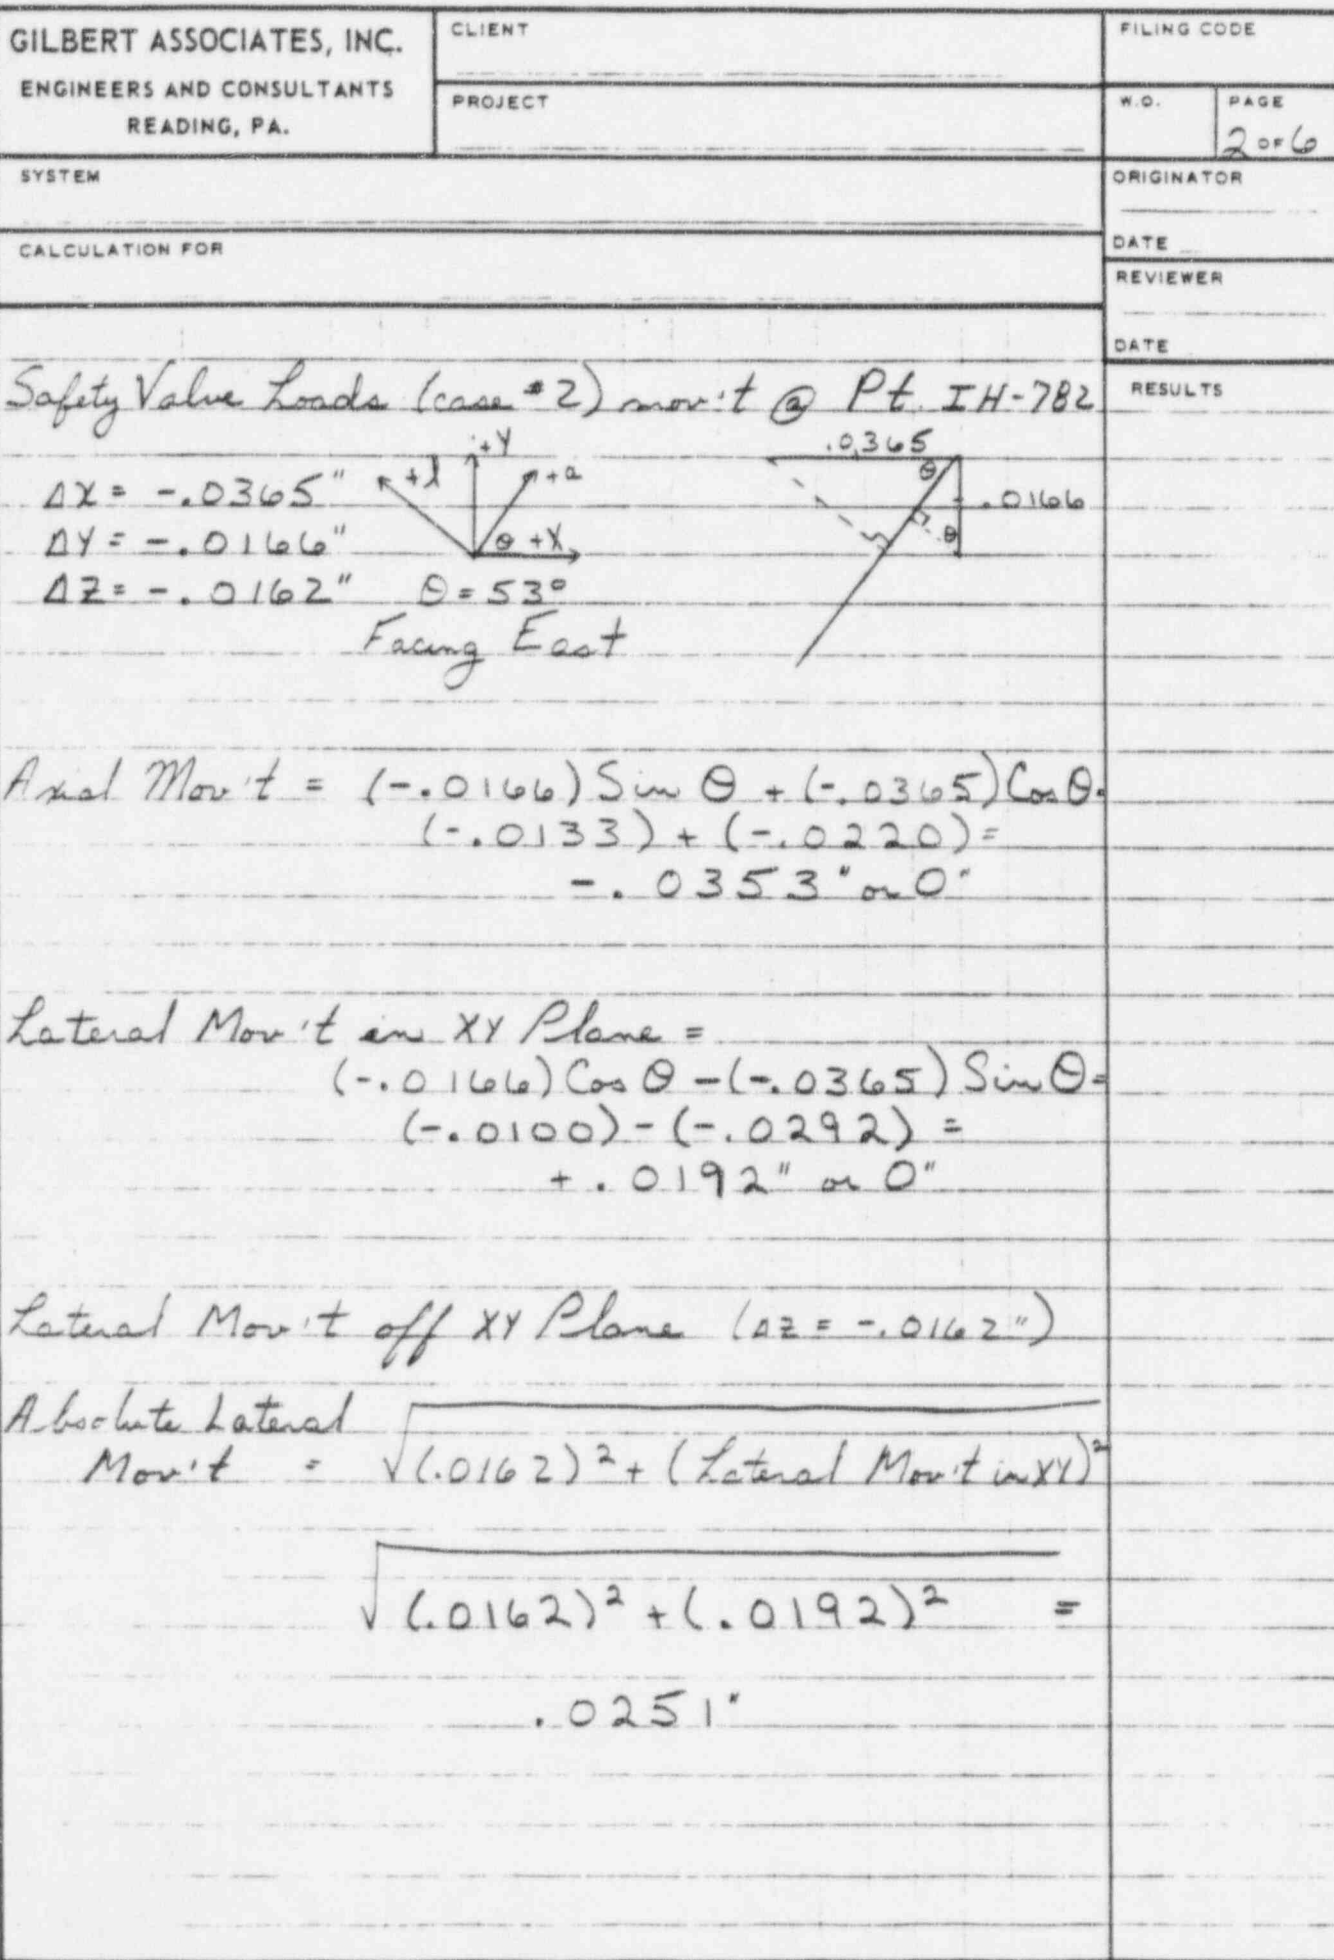 GILBERT ASSOCIATES, INC.
ENGINEERS AND CONSULTANTS
READING, PA.
CLIENT
PROJECT
FILING CODE
W.O.
PAGE
2 OF 6
SYSTEM
ORIGINATOR
DATE
CALCULATION FOR
REVIEWER
DATE
RESULTS
Safety Valve Loads (case #2) mov't @ Pt. IH-782
ΔX = -.0365"
ΔY = -.0166"
ΔZ = -.0162"
+l
+Y
+a
θ +X
θ = 53°
Facing East
.0365
θ
.0166
θ
Axial Mov't = (-.0166) Sin θ + (-.0365) Cos θ =
(-.0133) + (-.0220) =
-.0353" or 0"
Lateral Mov't in XY Plane =
(-.0166) Cos θ - (-.0365) Sin θ =
(-.0100) - (-.0292) =
+.0192" or 0"
Lateral Mov't off XY Plane (ΔZ = -.0162")
Absolute Lateral
Mov't = √(.0162)² + (Lateral Mov't in XY)²
√(.0162)² + (.0192)² =
.0251"